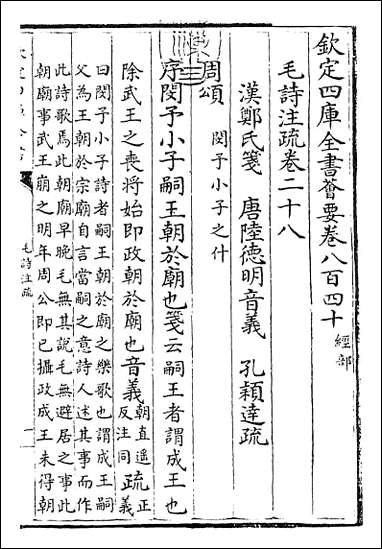 欽定四庫全書薈要卷八百四十 經部
毛詩注疏卷二十八
漢鄭氏箋 唐陸德明音義 孔穎達疏
周頌
閔予小子之什
序閔予小子嗣王朝於廟也箋云嗣王者謂成王也
除武王之喪將始即政朝於廟也音義朝直遥反注同疏正義
曰閔予小子詩者嗣王朝於廟之樂歌也成王嗣
父為王朝於宗廟自言當嗣之意詩人述其事而作
此詩歌焉此朝廟早晚毛無其說毛無避居之事此
朝廟事武王崩之明年周公即已攝政成王未得朝
毛詩注疏